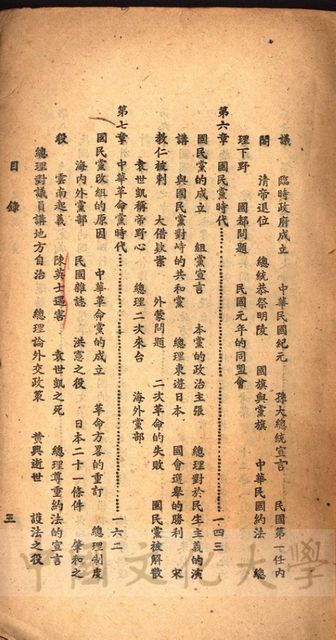 議　臨時政府成立　中華民國紀元　孫大總統宣言　民國第一任內
閣　清帝退位　總統恭祭明陵　國旗與黨旗　中華民國約法　總
理下野　國都問題　民國元年的同盟會
第六章　國民黨時代……一四三
國民黨的成立　組黨宣言　本黨的政治主張　總理對於民生主義的演
講　與國民黨對峙的共和黨　總理東遊日本　國會選舉的勝利　宋
教仁被刺　大借款案　外蒙問題　二次革命的失敗　國民黨被解散
袁世凱稱帝野心　總理二次來台　海外黨部
第七章　中華革命黨時代……一六二
國民黨改組的原因　中華革命黨的成立　革命方畧的重訂　總理制度
海內外黨部　民國雜誌　洪憲之役　日本二十一條件　肇和之
役　雲南起義　陳英士遇害　袁世凱之死　總理尊重約法的宣言
總理對議員講地方自治　總理論外交政策　黃興逝世　護法之役
目錄　三
中國文化大學